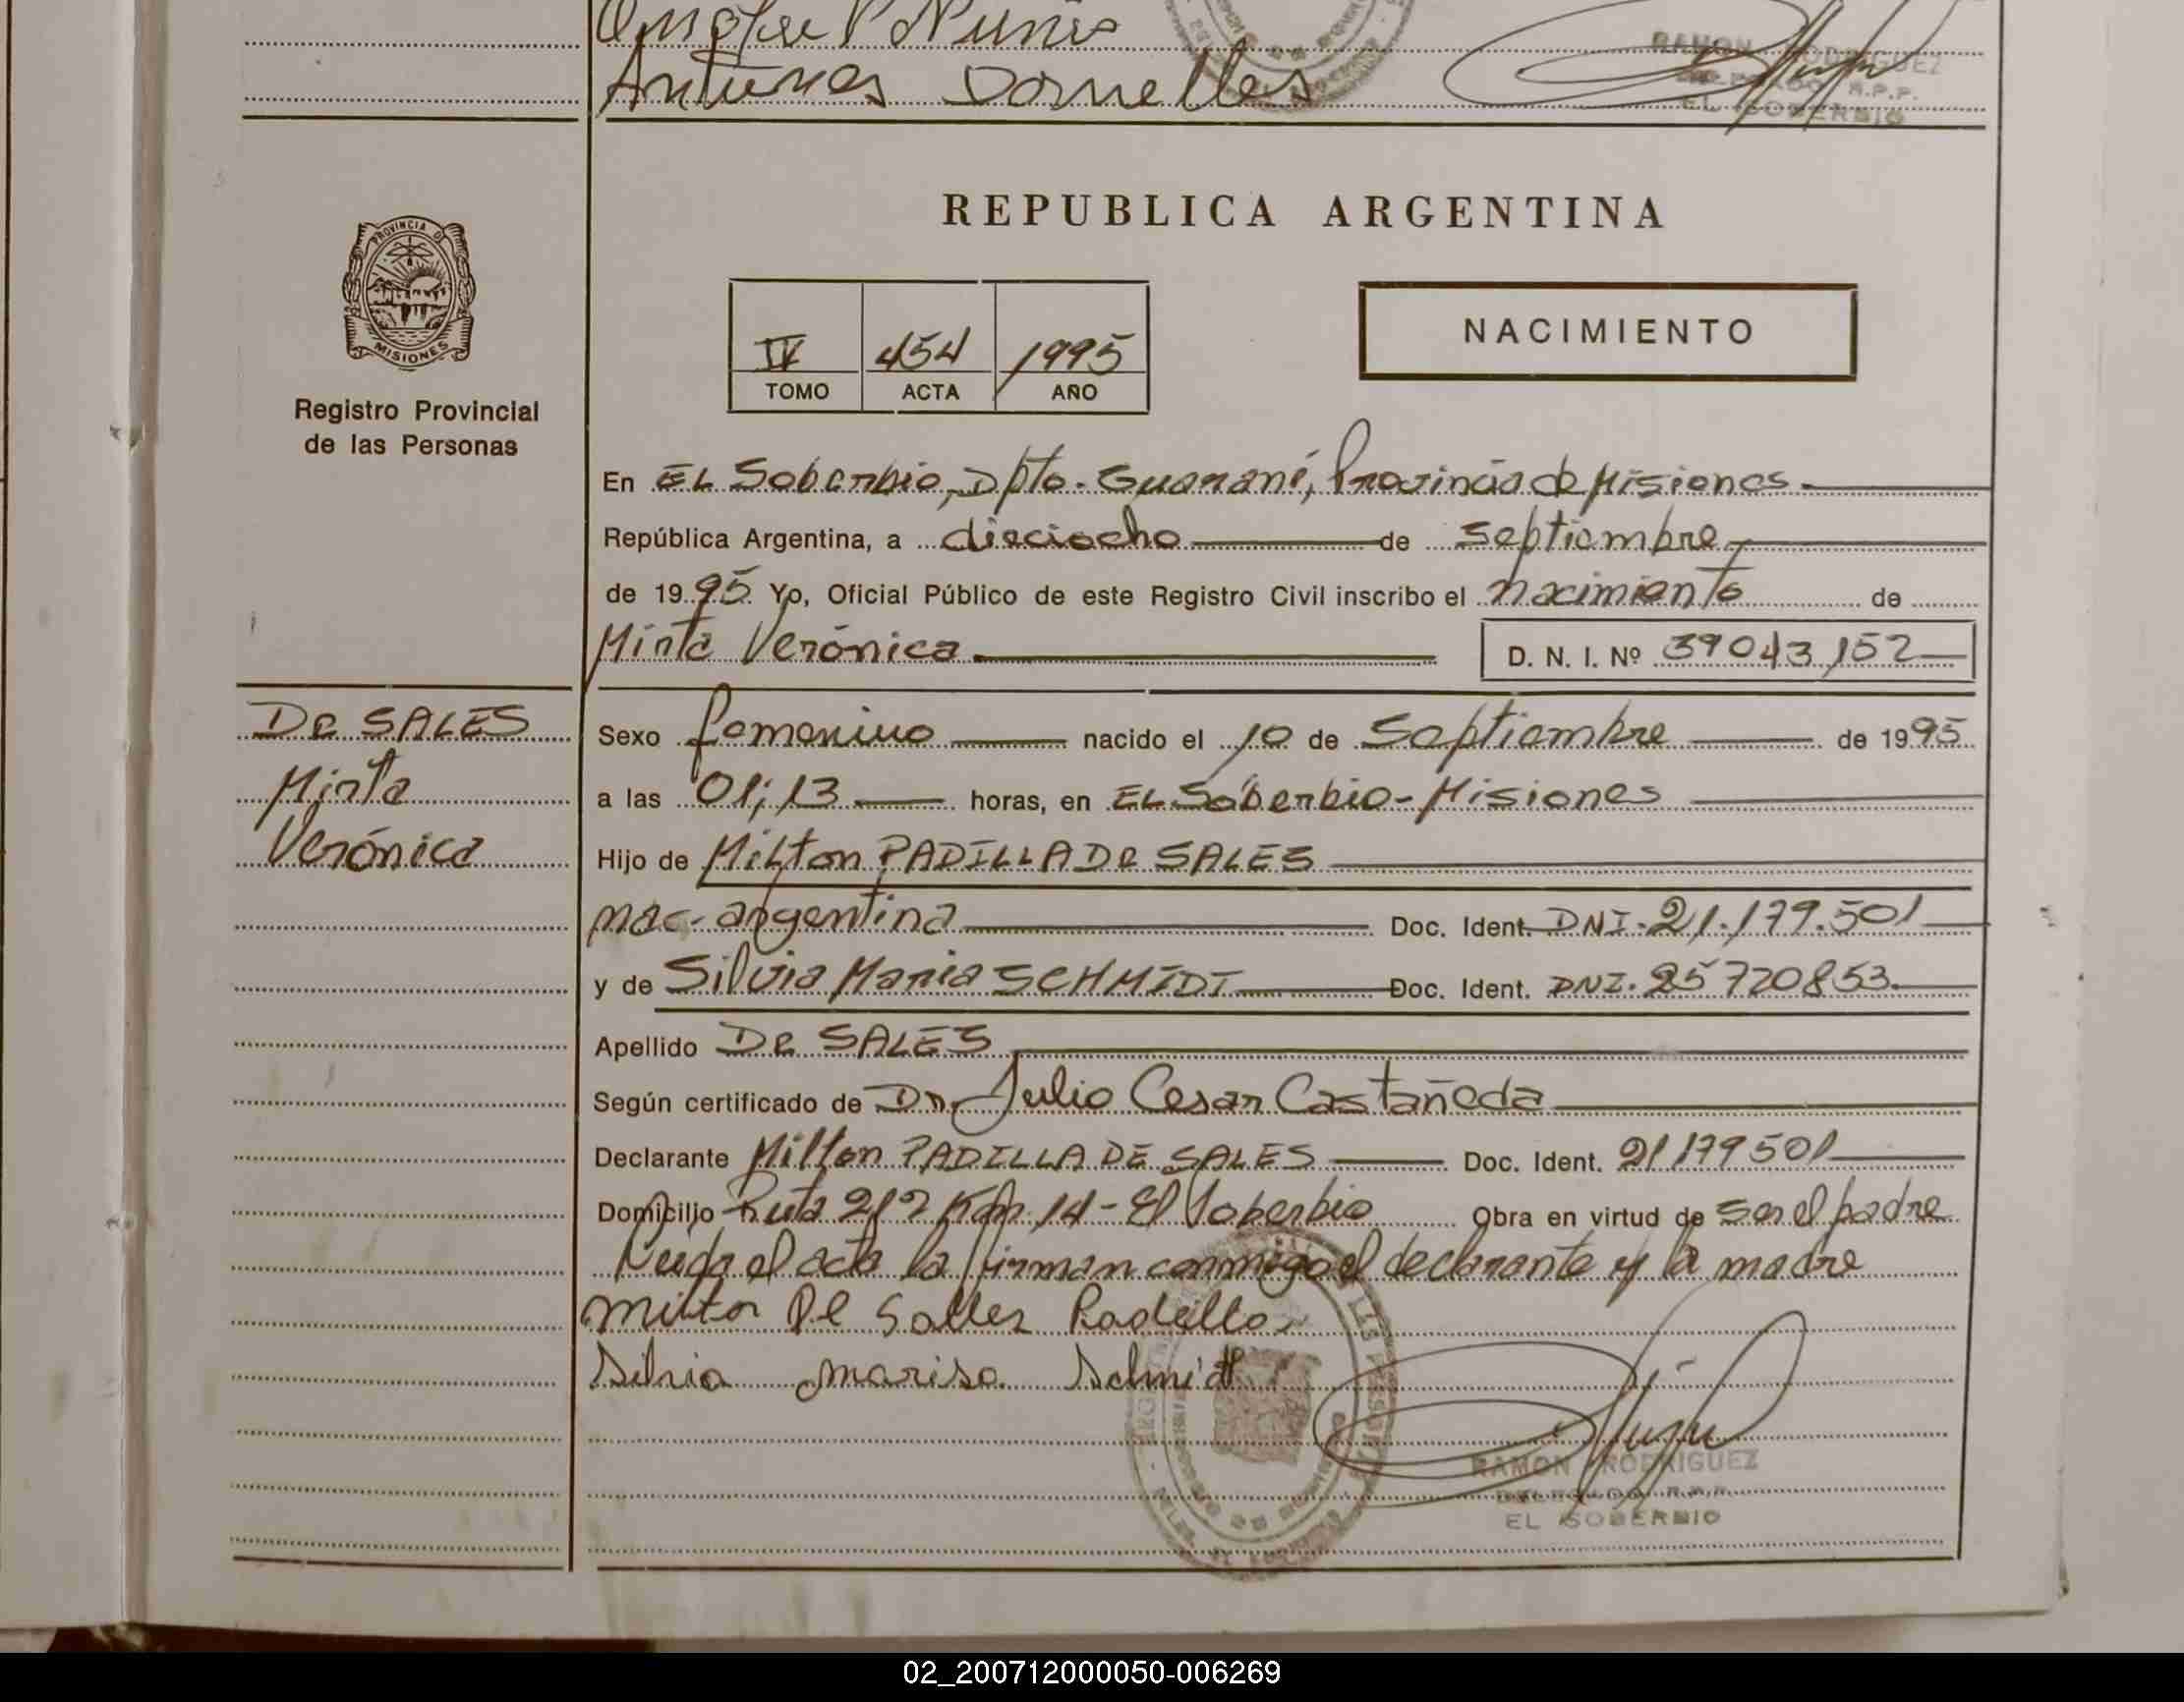 Nunes
Antunes Dornelles
RAMON RODRIGUEZ
R.P.P.
EL SOBERBIO
REPUBLICA ARGENTINA
PROVINCIA DE
MISIONES
IV 454 1995
TOMO ACTA AÑO
NACIMIENTO
Registro Provincial
de las Personas
En EL Soberbio, Dpto. Guaraní, Provincia de Misiones.
República Argentina, a dieciocho de septiembre
de 1995 Yo, Oficial Público de este Registro Civil inscribo el nacimiento de
Mirta Verónica D. N. I. Nº 39043152
De SALES
Mirta
Verónica
Sexo femenino nacido el 10 de Septiembre de 1995
a las 01;13 horas, en EL Soberbio - Misiones
Hijo de Milton PADILLA De SALES
nac. argentina Doc. Ident. DNI. 21.179.501
y de Silvia Marisa SCHMIDT Doc. Ident. DNI. 25720853
Apellido De SALES
Según certificado de Dr. Julio Cesar Castañeda
Declarante Milton PADILLA DE SALES Doc. Ident. 21179501
Domicilio Ruta 212 Km 14 - El Soberbio Obra en virtud de ser el padre
Leida el acta la firman conmigo el declarante y la madre
Milton De Salles Padilla
Silvia marisa Schmidt
RAMON RODRIGUEZ
DELEGADO R.P.P.
EL SOBERBIO
02_200712000050-006269